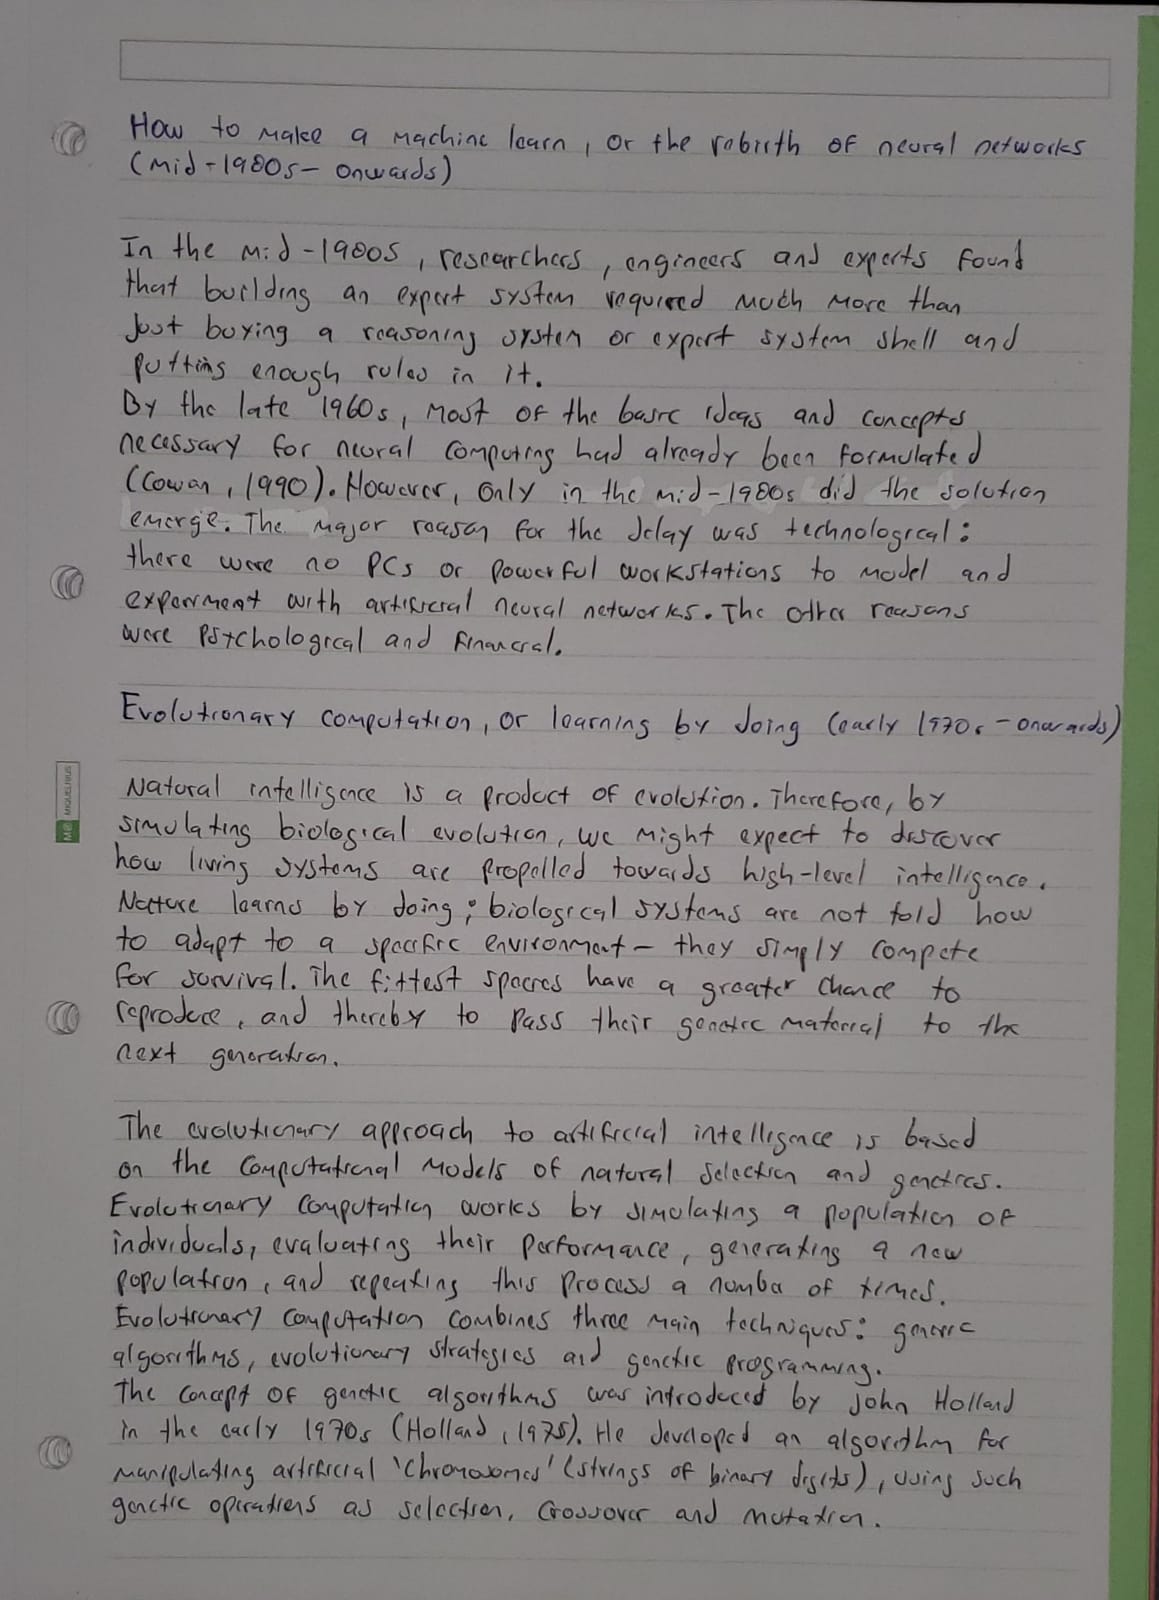 How to make a machine learn, or the rebirth of neural networks
(mid-1980s- onwards)
In the mid-1980s, researchers, engineers and experts found
that building an expert system required much more than
just buying a reasoning system or expert system shell and
putting enough rules in it.
By the late 1960s, most of the basic ideas and concepts
necessary for neural computing had already been formulated
(Cowan, 1990). However, only in the mid-1980s did the solution
emerge. The major reason for the delay was technological:
there were no PCs or powerful workstations to model and
experiment with artificial neural networks. The other reasons
were psychological and financial.
Evolutionary computation, or learning by doing (early 1970s-onwards)
Natural intelligence is a product of evolution. Therefore, by
simulating biological evolution, we might expect to discover
how living systems are propelled towards high-level intelligence.
Nature learns by doing; biological systems are not told how
to adapt to a specific environment- they simply compete
for survival. The fittest species have a greater chance to
reproduce, and thereby to pass their genetic material to the
next generation.
The evolutionary approach to artificial intelligence is based
on the computational models of natural selection and genetics.
Evolutionary computation works by simulating a population of
individuals, evaluating their performance, generating a new
population, and repeating this process a number of times.
Evolutionary computation combines three main techniques: generic
algorithms, evolutionary strategies and genetic programming.
The concept of genetic algorithms was introduced by John Holland
in the early 1970s (Holland, 1975). He developed an algorithm for
manipulating artificial 'chromosomes' (strings of binary digits), using such
genetic operations as selection, crossover and mutation.
MIQUELRIUS